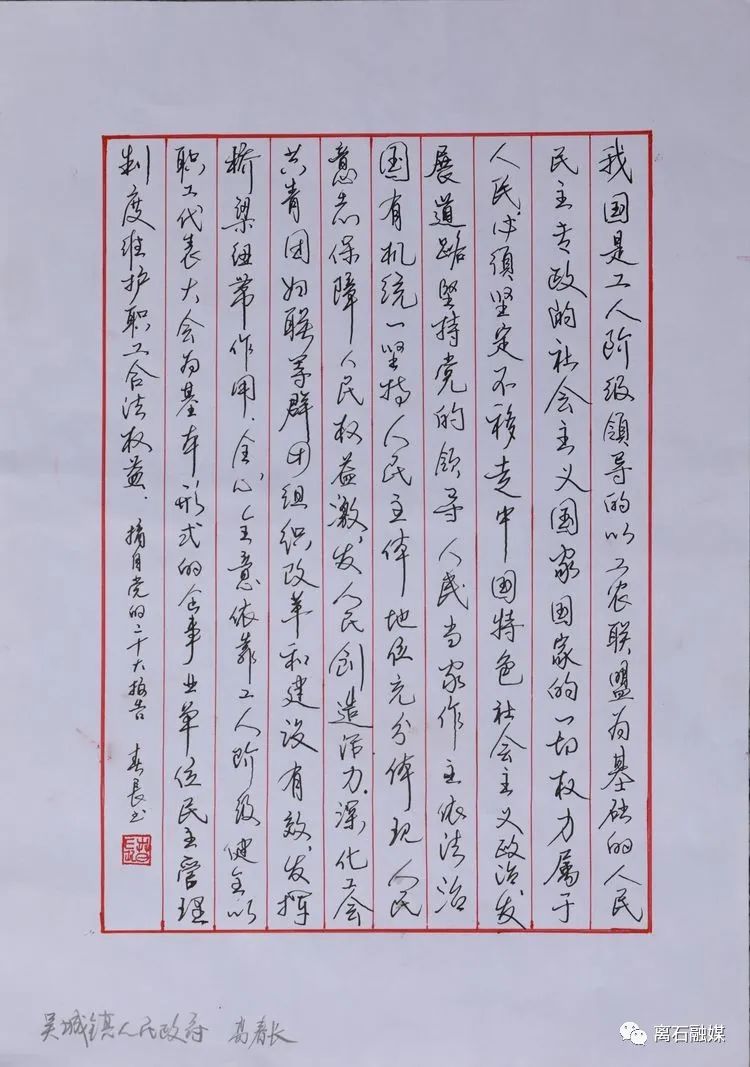 我国是工人阶级领导的以工农联盟为基础的人民
民主专政的社会主义国家国家的一切权力属于
人民必须坚定不移走中国特色社会主义政治发
展道路坚持党的领导人民当家作主依法治
国有机统一坚持人民主体地位充分体现人民
意志保障人民权益激发人民创造活力.深化工会
共青团妇联等群团组织改革和建设有效发挥
桥梁纽带作用.全心全意依靠工人阶级健全以
职工代表大会为基本形式的企事业单位民主管理
制度维护职工合法权益. 摘自党的二十大报告 春长书
吴城镇人民政府 高春长
离石融媒